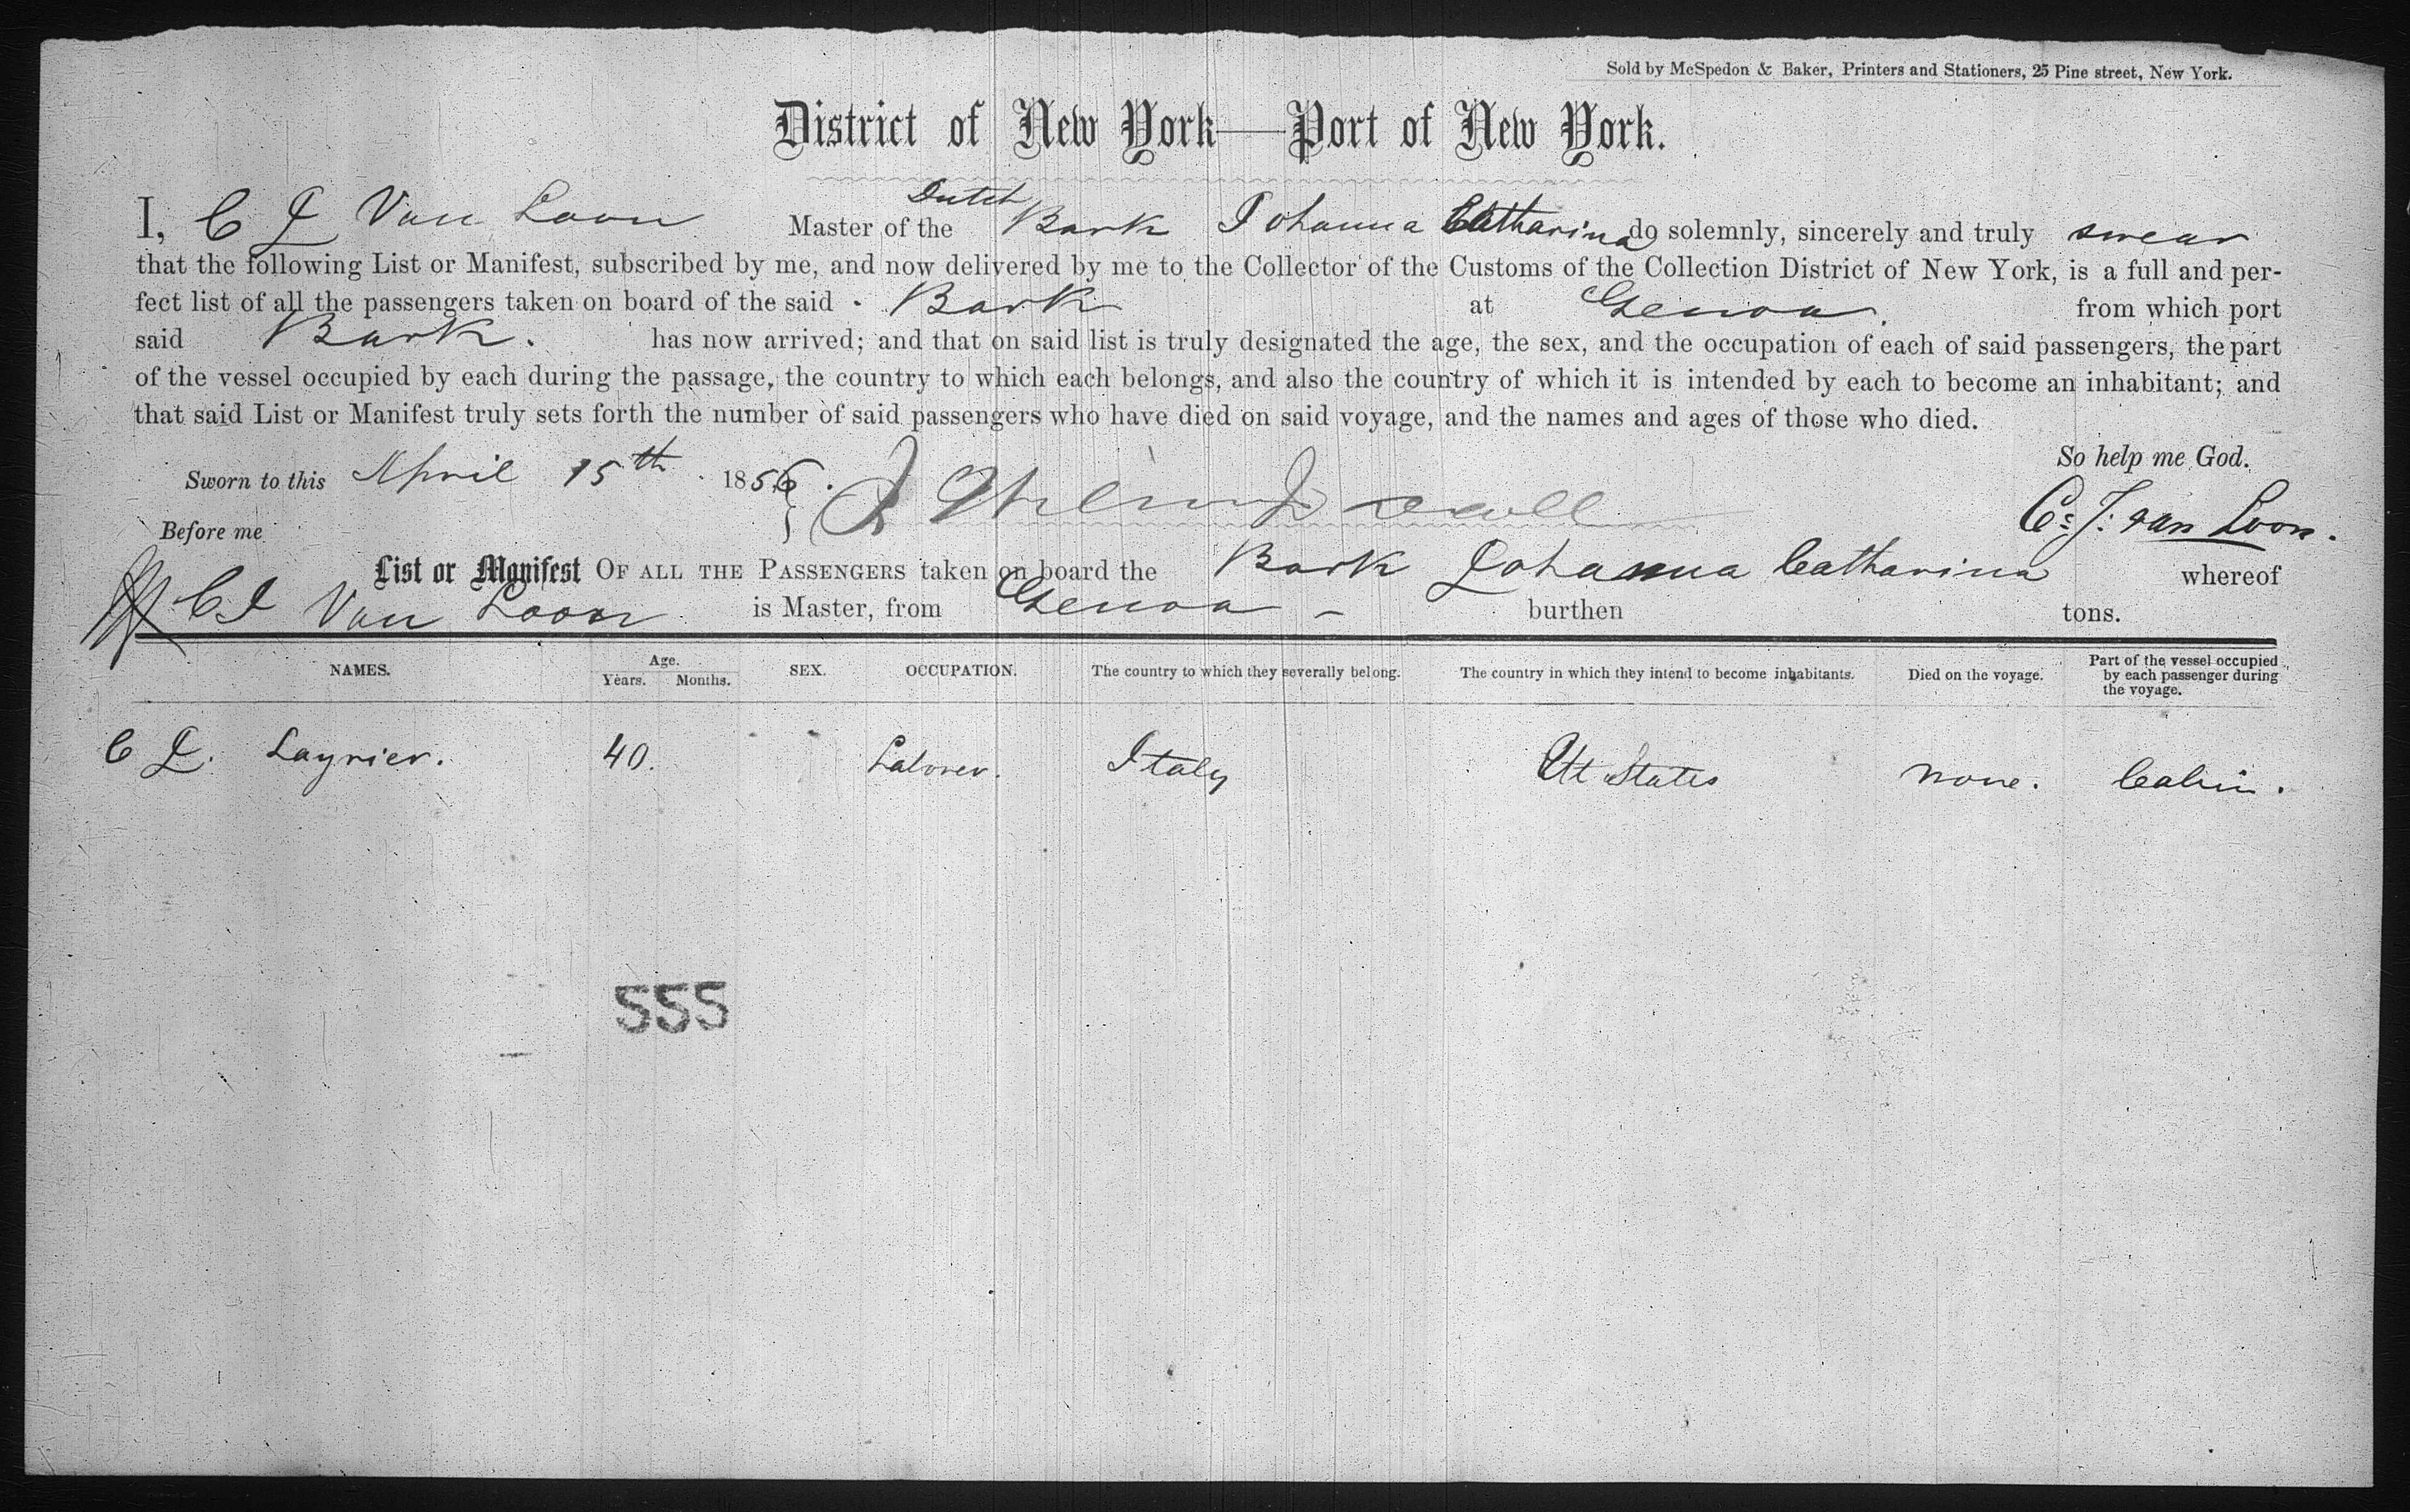 Sold by McSpedon & Baker, Printers and Stationers, 25 Pine street, New York.
District of New York—Port of New York.
I, C J Van Loon Master of the Dutch Bark Johanna Catharina do solemnly, sincerely and truly swear
that the following List or Manifest, subscribed by me, and now delivered by me to the Collector of the Customs of the Collection District of New York, is a full and per-
fect list of all the passengers taken on board of the said Bark at Genoa. from which port
said Bark. has now arrived; and that on said list is truly designated the age, the sex, and the occupation of each of said passengers, the part
of the vessel occupied by each during the passage, the country to which each belongs, and also the country of which it is intended by each to become an inhabitant; and
that said List or Manifest truly sets forth the number of said passengers who have died on said voyage, and the names and ages of those who died.
So help me God.
Sworn to this April 15th 1856.
C. J. van Loon.
Before me
List or Manifest OF ALL THE PASSENGERS taken on board the Bark Johanna Catharina whereof
C J Van Loon is Master, from Genoa - burthen tons.
NAMES. Age. Years. Months. SEX. OCCUPATION. The country to which they severally belong. The country in which they intend to become inhabitants. Died on the voyage. Part of the vessel occupied by each passenger during the voyage.
C J. 40. Laborer. Italy Ut States none. Cabin.
555